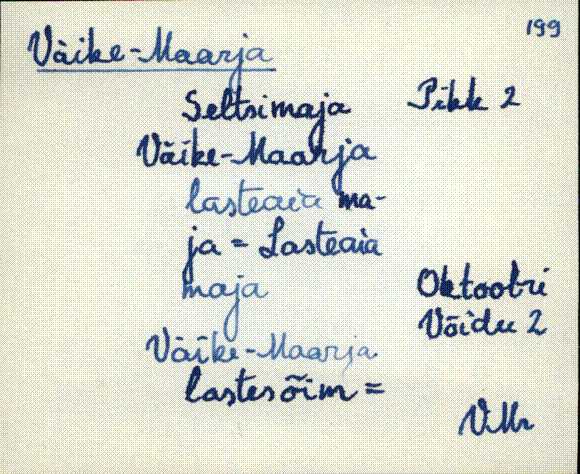 199
Väike-Maarja
Seltsimaja Pikk 2
Väike-Maarja
lasteaia ma-
ja = Lasteaia
maja Oktoobri
Võidu 2
Väike-Maarja
lastesõim =
VMr